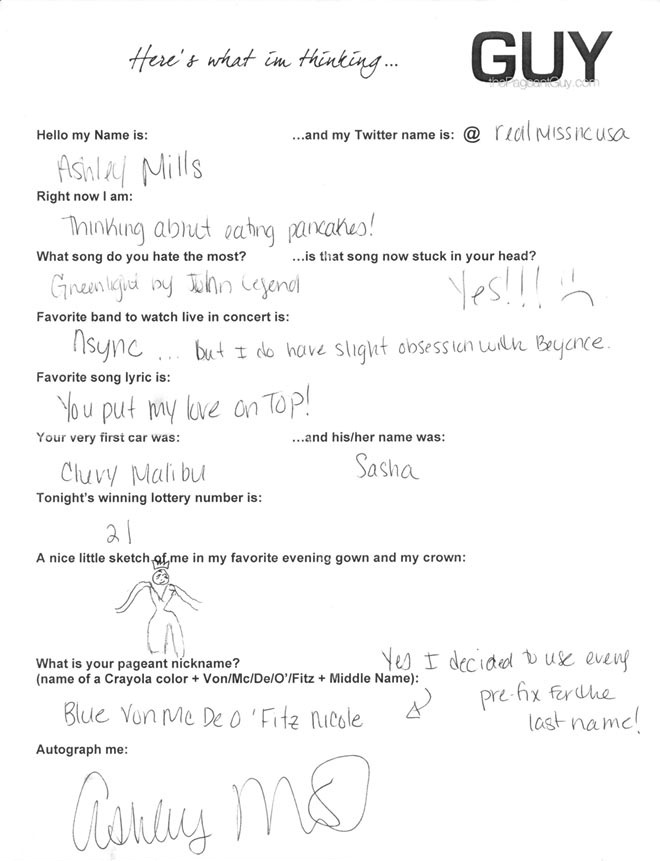 Here's what im thinking...
GUY
thePageantGuy.com
Hello my Name is: ...and my Twitter name is: @ realmissncusa
Ashley Mills
Right now I am:
Thinking about eating pancakes!
What song do you hate the most? ...is that song now stuck in your head?
Greenlight by John Legend Yes!!!
Favorite band to watch live in concert is:
Nsync ... but I do have slight obsession with Beyonce.
Favorite song lyric is:
You put my love on TOP!
Your very first car was: ...and his/her name was:
Chevy Malibu Sasha
Tonight's winning lottery number is:
21
A nice little sketch of me in my favorite evening gown and my crown:
What is your pageant nickname?
(name of a Crayola color + Von/Mc/De/O'/Fitz + Middle Name):
Yes I decided to use every
pre-fix for the
last name!
Blue Von Mc De O 'Fitz Nicole
Autograph me:
Ashley M